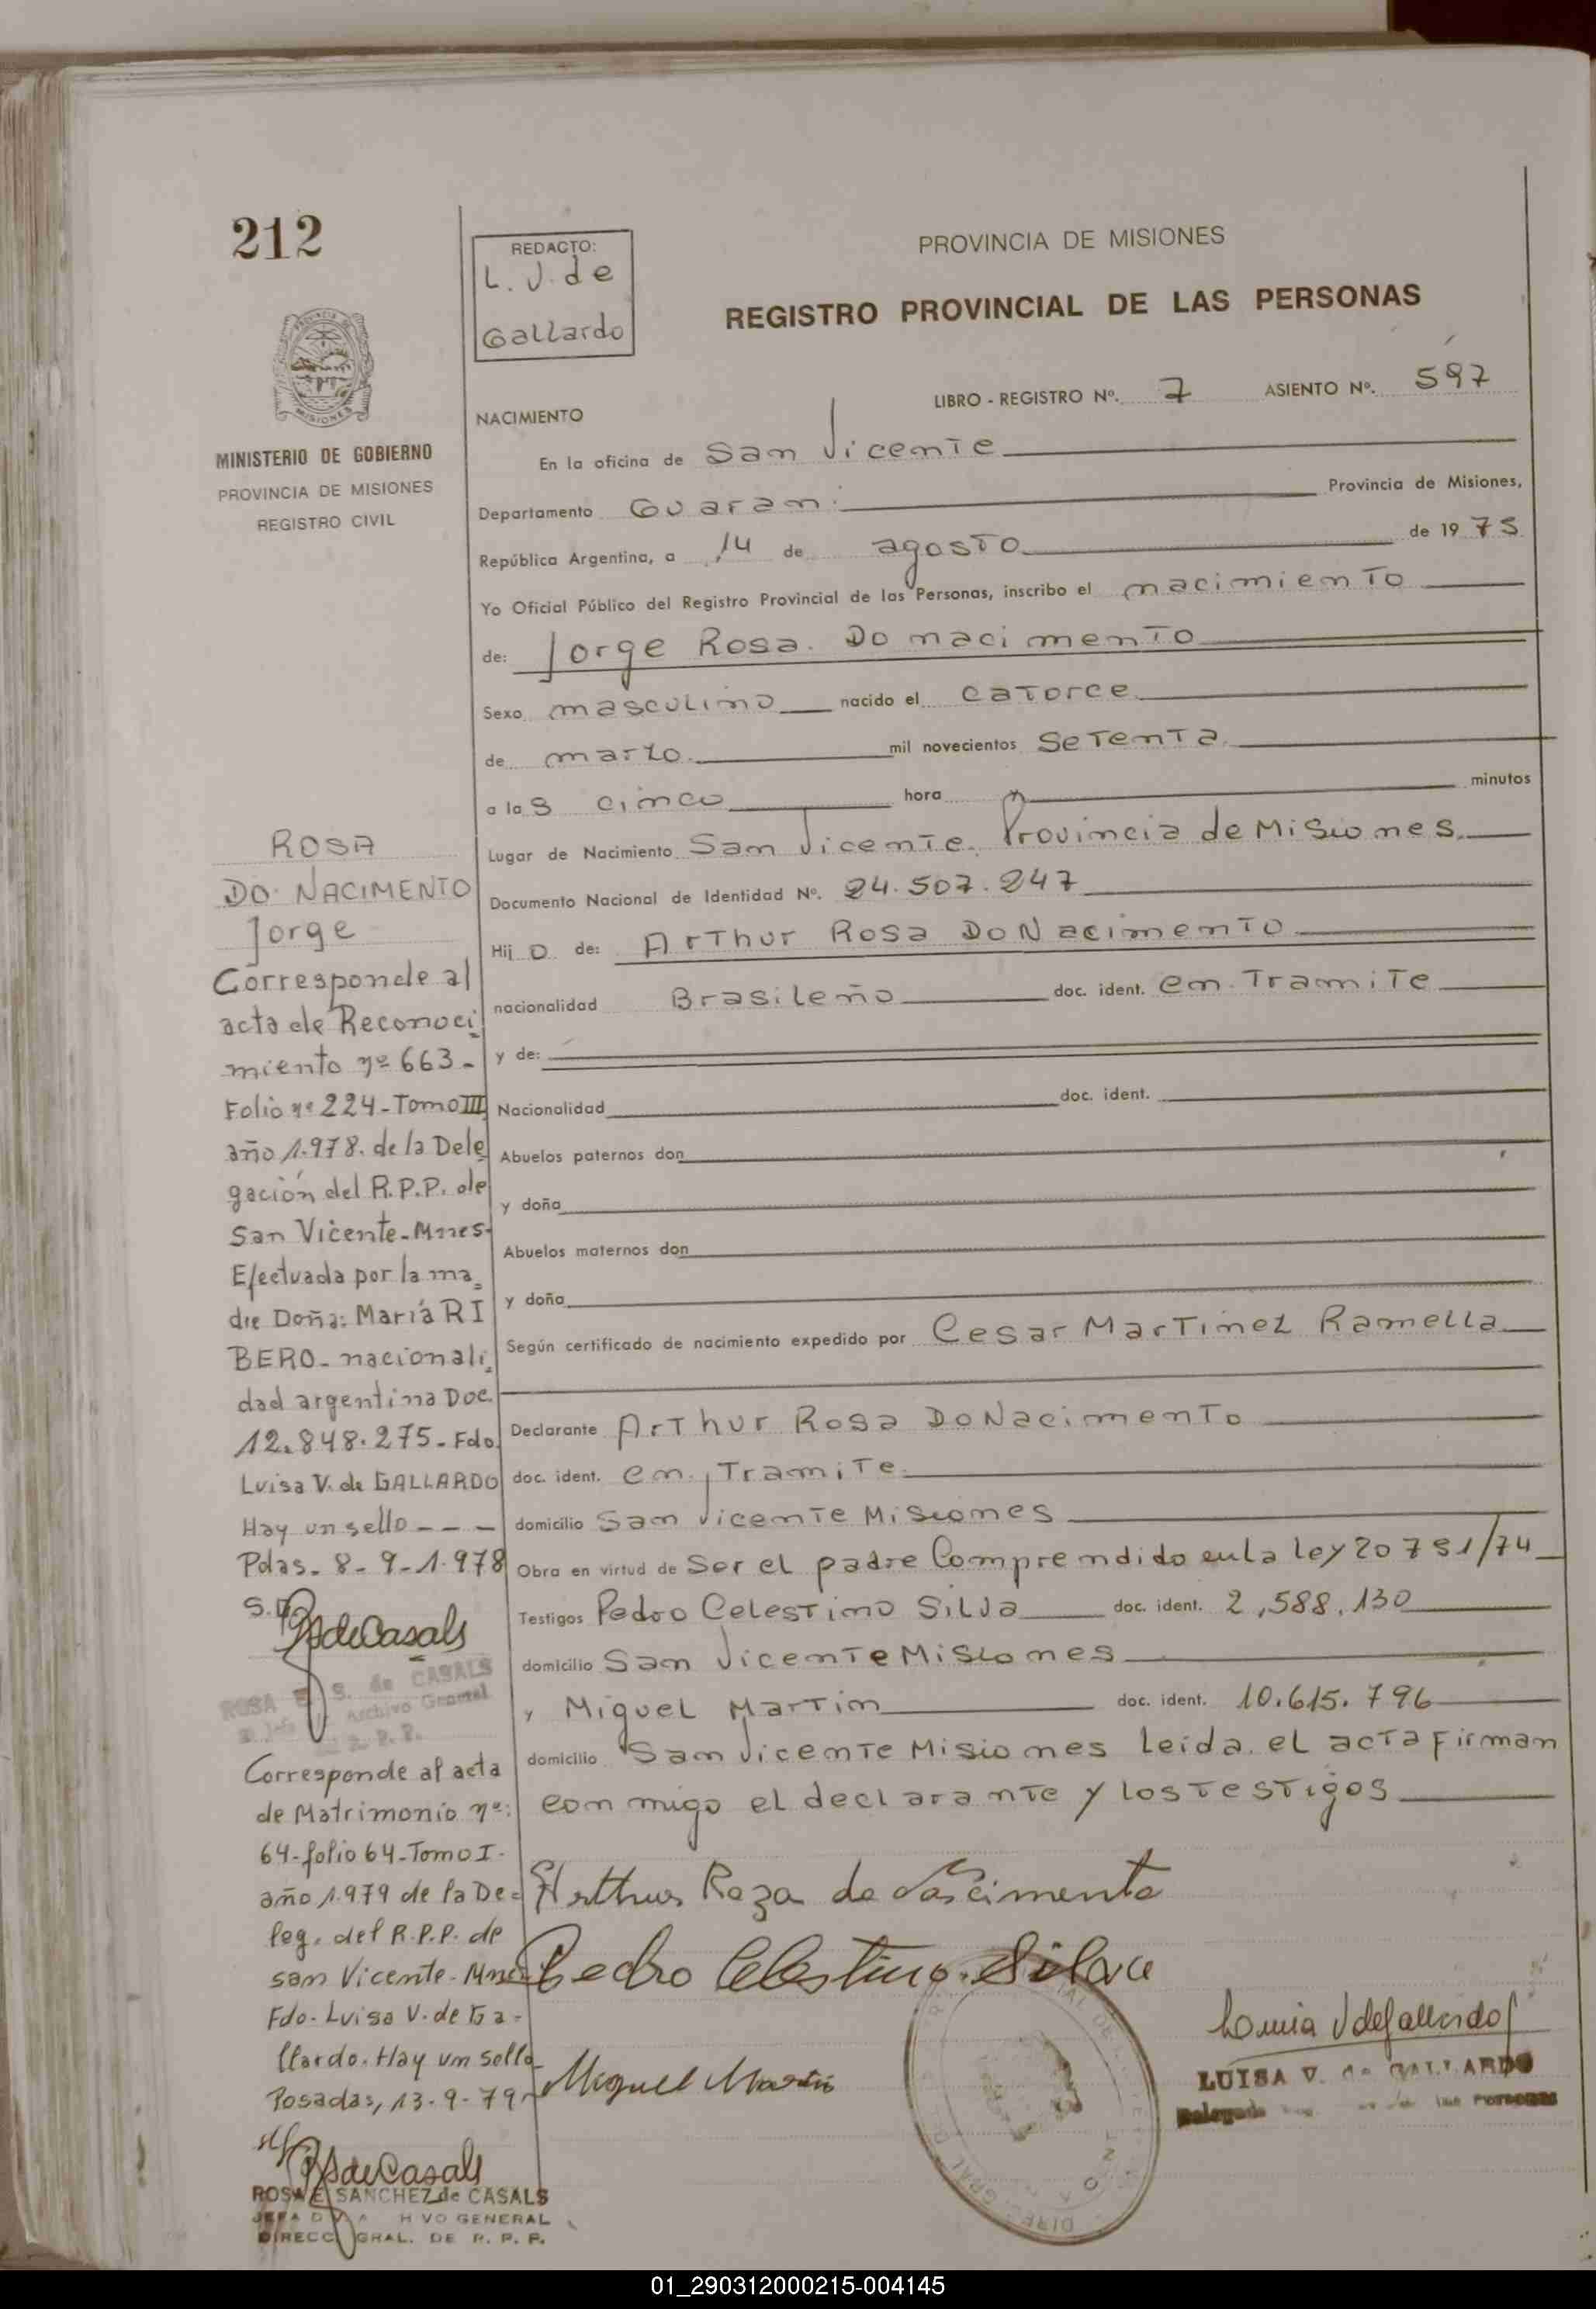 212
REDACTO:
L. V. de
Gallardo
PROVINCIA DE MISIONES
REGISTRO PROVINCIAL DE LAS PERSONAS
PROVINCIA DE
MISIONES
MINISTERIO DE GOBIERNO
PROVINCIA DE MISIONES
REGISTRO CIVIL
LIBRO - REGISTRO Nº. 7 ASIENTO Nº. 597
NACIMIENTO
En la oficina de San Vicente
Departamento Guarani Provincia de Misiones,
República Argentina, a 14 de agosto de 1975
Yo Oficial Público del Registro Provincial de las Personas, inscribo el nacimiento
de: Jorge Rosa. Do nacimento
Sexo masculino nacido el catorce
de marzo. mil novecientos setenta
a las cinco hora minutos
Lugar de Nacimiento San Vicente. Provincia de Misiones.
Documento Nacional de Identidad Nº. 24.507.247
Hijo de: Arthur Rosa Do Nacimento
nacionalidad Brasileño doc. ident. en. Tramite
y de:
Nacionalidad doc. ident.
Abuelos paternos don
y doña
Abuelos maternos don
y doña
Según certificado de nacimiento expedido por Cesar Martinez Ramella
Declarante Arthur Rosa Do Nacimento
doc. ident. en. Tramite.
domicilio San Vicente Misiones
Obra en virtud de Ser el padre Comprendido en la ley 20751/74
Testigos Pedro Celestino Silva doc. ident. 2,588,130
domicilio San Vicente Misiones
y Miguel Martin doc. ident. 10.615.796
domicilio San Vicente Misiones Leida. el acta firman
conmigo el declarante y los testigos
Arthur Roza do Nascimento
Pedro Celestino Silva
Miguel Martin
Luisa V de Gallardo
LUISA V. de GALLARDO
Delegada las Personas
ROSA
DO NACIMENTO
Jorge
Corresponde al
acta de Reconoci
miento nº 663-
Folio nº 224-Tomo III
año 1.978. de la Dele
gación del R.P.P. de
San Vicente-Mnes-
Efectuada por la ma
dre Doña: María RI
BERO- nacionali
dad argentina Doc.
12.848.275- Fdo.
Luisa V. de GALLARDO
Hay un sello - - -
Pdas- 8-9-1.978
RSdeCasals
ROSA E. S. de CASALS
Archivo General
R. P. P.
Corresponde al acta
de Matrimonio nº:
64-folio 64-Tomo I-
año 1.979 de la De=
leg. del R.P.P. de
san Vicente-Mnes
Fdo- Luisa V. de Ga=
llardo. Hay un sello
Posadas, 13-9-79
RSdeCasals
ROSA E SANCHEZ de CASALS
JEFA HIVO GENERAL
DIRECC GRAL. DE R. P. P.
01_290312000215-004145